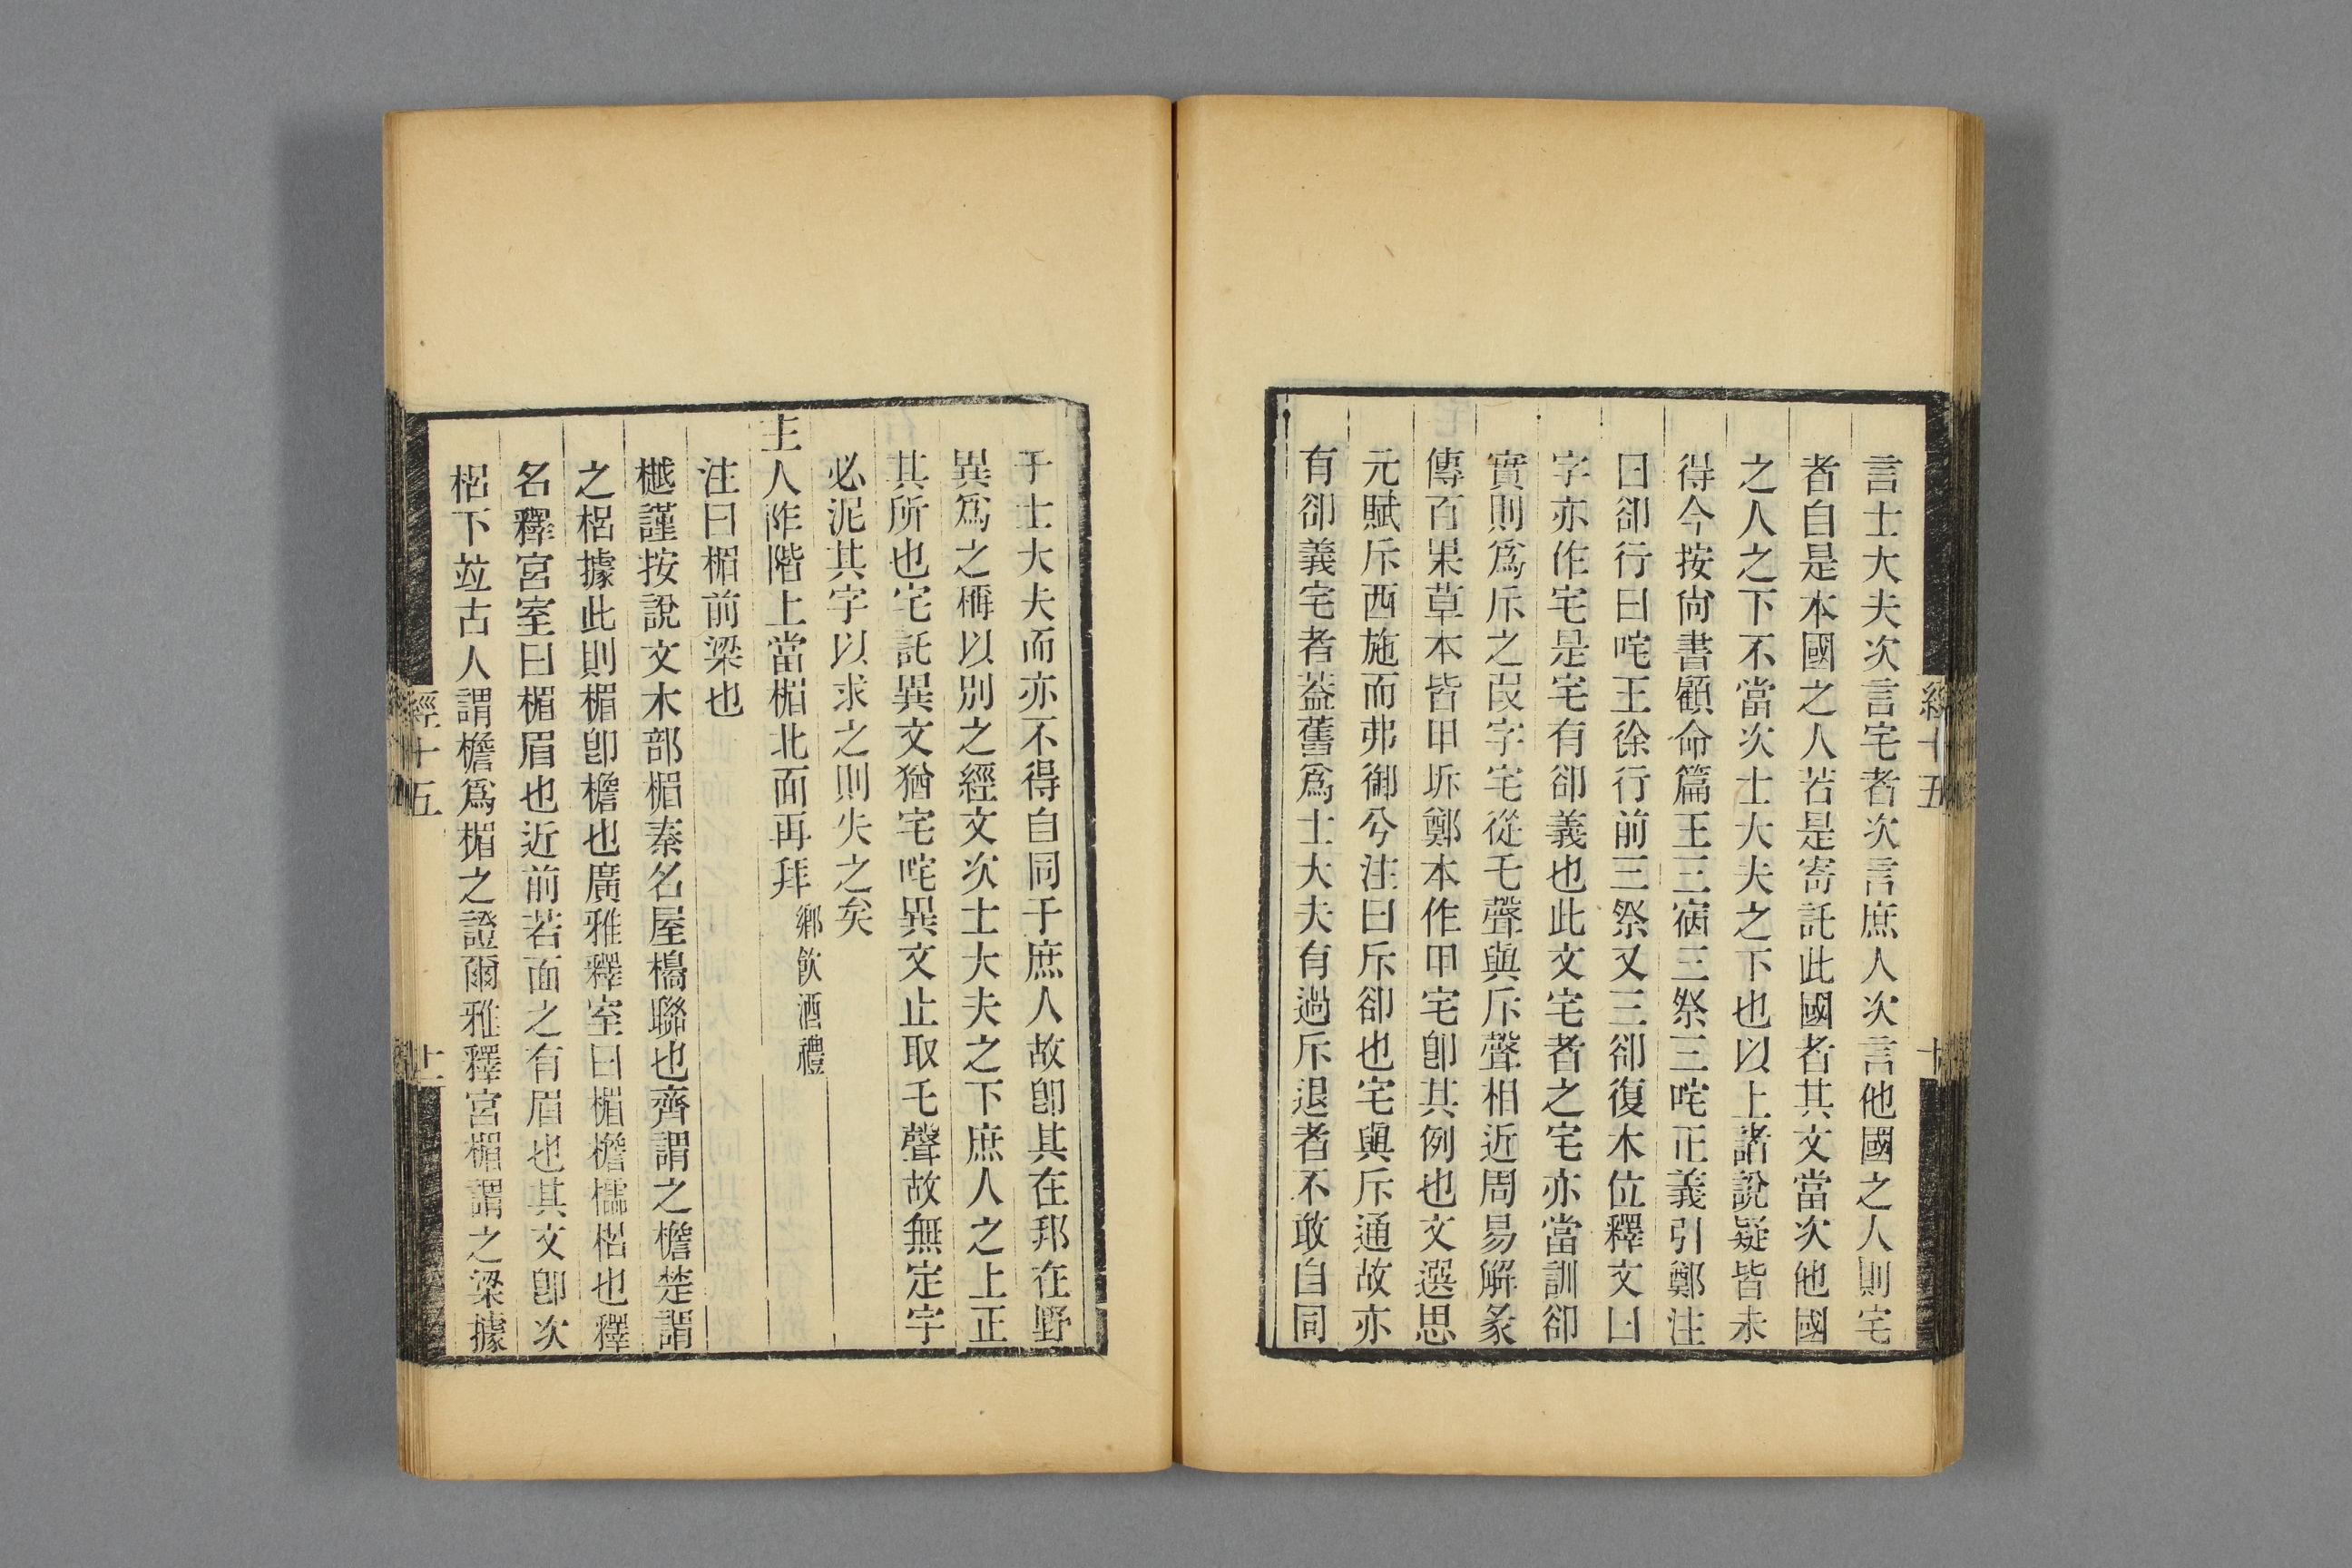 言士大夫次言宅者次言庶人次言他國之人則宅
者自是本國之人若是寄託此國者其文當次他國
之人之下不當次士大夫之下也以上諸說疑皆未
得今按尙書顧命篇王三宿三祭三咤正義引鄭注
曰卻行曰咤王徐行前三祭又三卻復本位釋文曰
字亦作宅是宅有卻義也此文宅者之宅亦當訓卻
實則爲斥之叚字宅從乇聲與斥聲相近周易解彖
傳百果草木皆甲坼鄭本作甲宅卽其例也文選思
元賦斥西施而弗御兮注曰斥卻也宅與斥通故亦
有卻義宅者葢舊爲士大夫有過斥退者不敢自同
經十五
十
于士大夫而亦不得自同于庶人故卽其在邦在野
異爲之稱以別之經文次士大夫之下庶人之上正
其所也宅託異文猶宅咤異文止取乇聲故無定字
必泥其字以求之則失之矣
主人阼階上當楣北面再拜鄉飲酒禮
注曰楣前梁也
樾謹按說文木部楣秦名屋櫋聯也齊謂之檐楚謂
之梠據此則楣卽檐也廣雅釋室曰楣檐櫺梠也釋
名釋宮室曰楣眉也近前若面之有眉也其文卽次
梠下竝古人謂檐爲楣之證爾雅釋宮楣謂之梁據
經十五